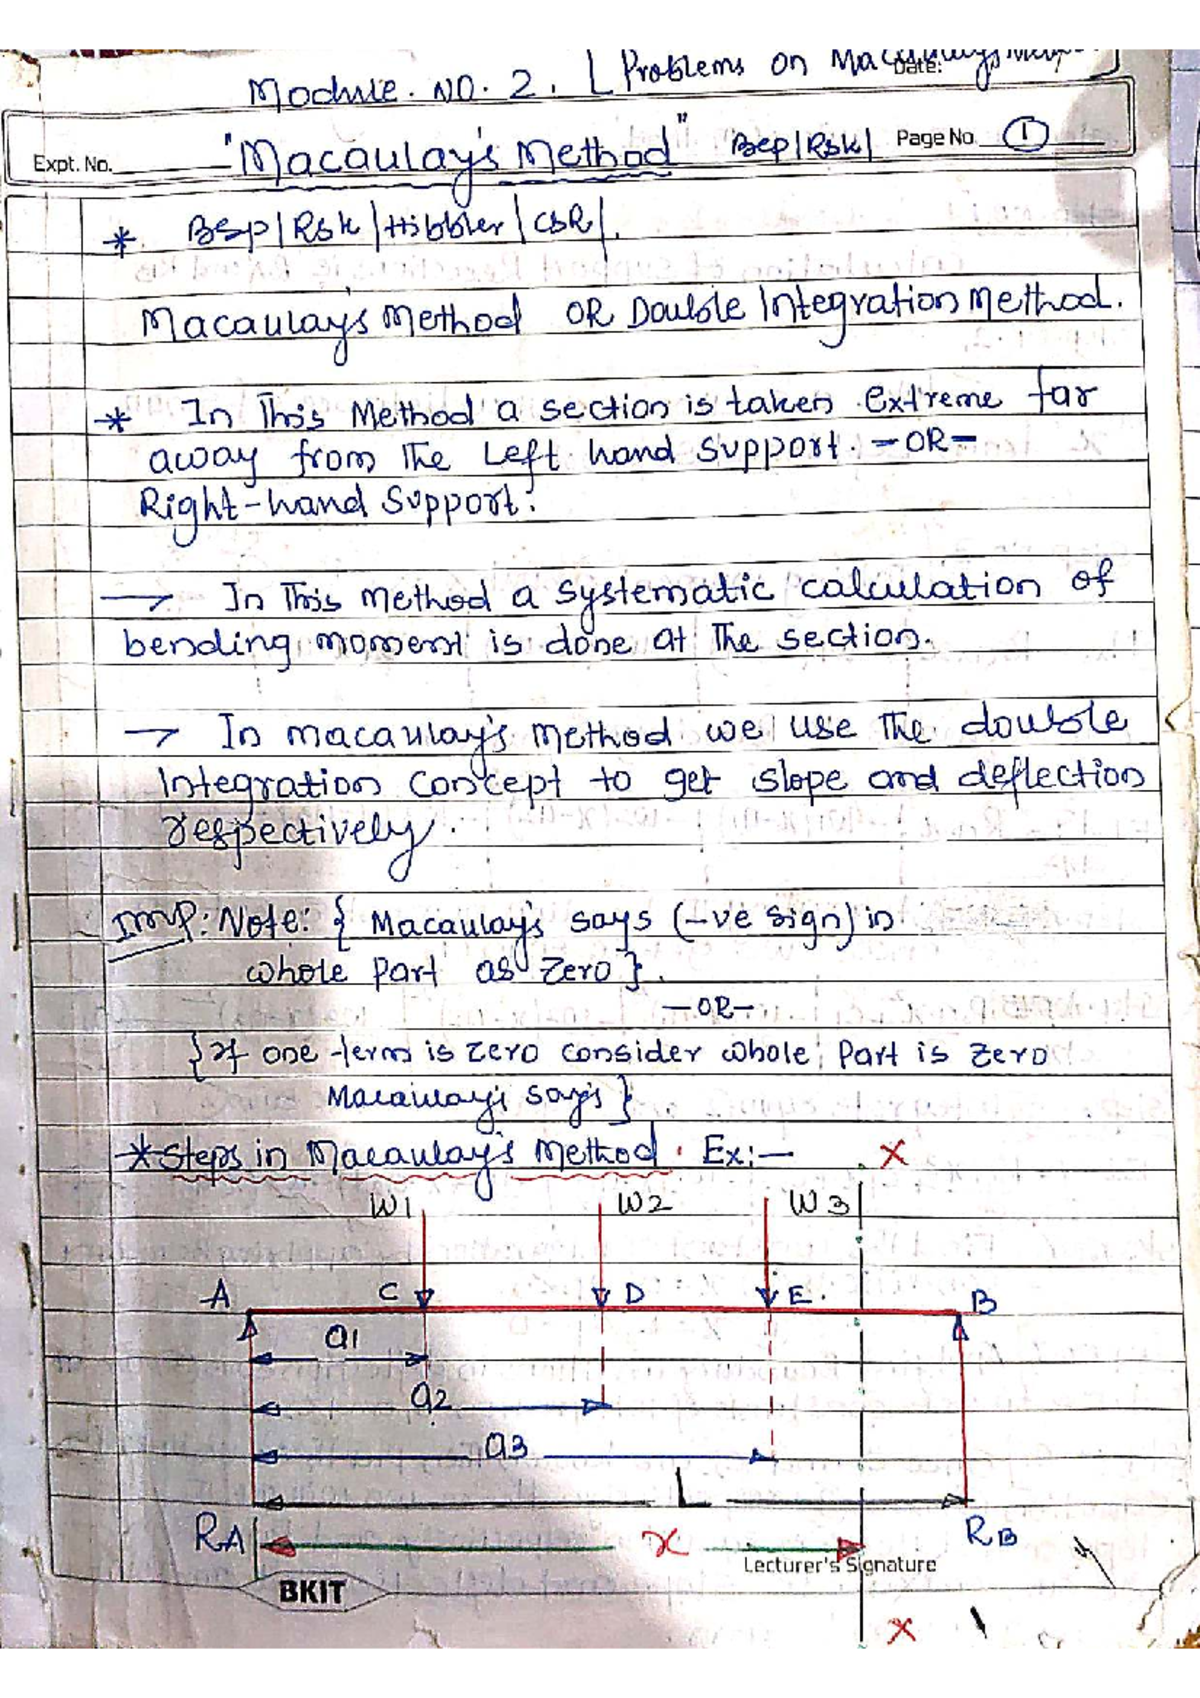 Module. NO. 2. [ Problems on Macaulay's
Date:
Expt. No.
"Macaulay's Method" Bsp/Rsk/ Page No. 1
* Bsp/Rsk/Hibbler/CSR/.
Macaulay's Method OR Double Integration Method.
* In This Method a section is taken Extreme far
away from The Left hand support. -OR-
Right-hand Support:
→ In This Method a systematic calculation of
bending moment is done at The section.
→ In macaulay's Method we use The double
Integration Concept to get slope and deflection
respectively.
IMP: Note: { Macaulay's says (-ve sign) in
whole Part as zero }.
-OR-
{ If one term is zero consider whole Part is zero
Macaulay's says }
* Steps in Macaulay's Method. Ex:-
X
W1 W2 W3
A C D E. B
a1
a2
a3
L
RA x RB
Lecturer's Signature
BKIT
X